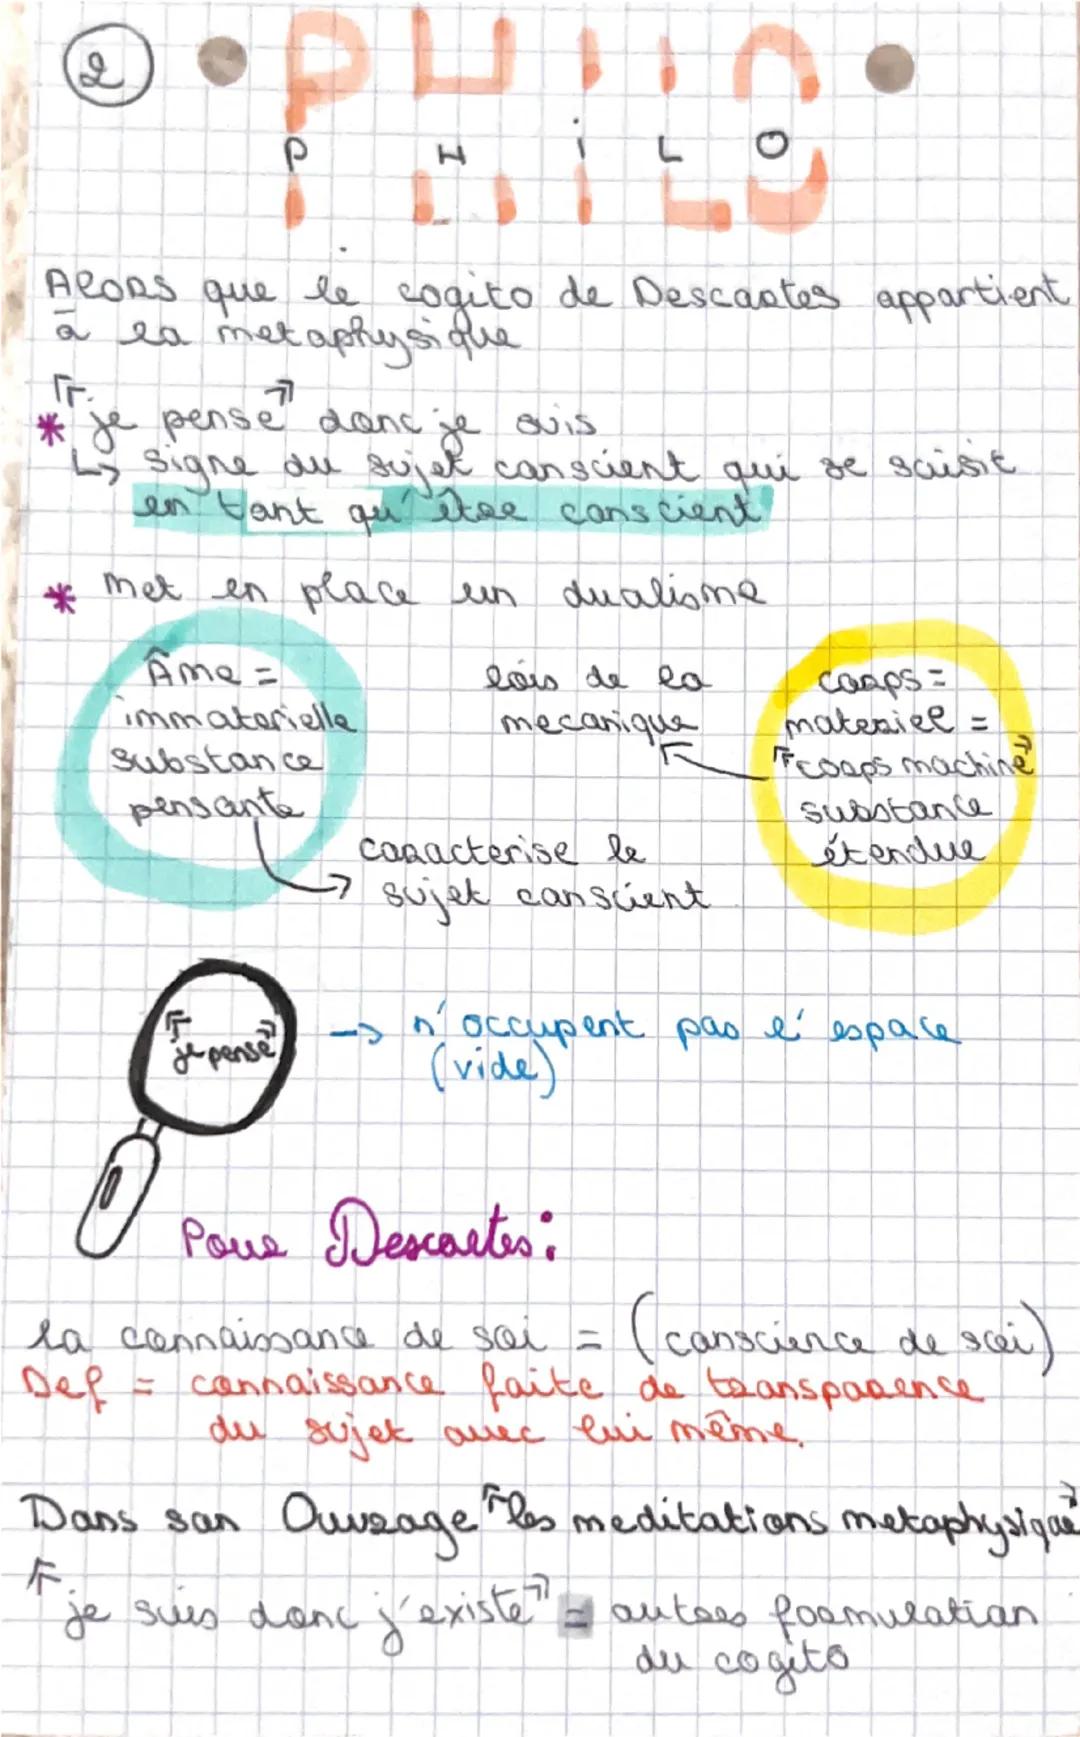 2
PHILO
P H i L O
Alors que le cogito de Descartes appartient
à la metaphysique
* "je pense" donc je suis
↳ signe du sujet conscient qui se saisit
en tant qu'être conscient
* met en place un dualisme
Âme =
immaterielle
substance
pensante
lois de la
mecanique
corps =
materiel =
"corps machine"
substance
étendue
caracterise le
sujet conscient
"je pense"
→ n'occupent pas l'espace
(vide)
Pour Descartes :
la connaissance de soi = (conscience de soi)
Def = connaissance faite de transparence
du sujet avec lui même.
Dans son Ouvrage "les meditations metaphysique"
"je suis donc j'existe" = autres formulation
du cogito